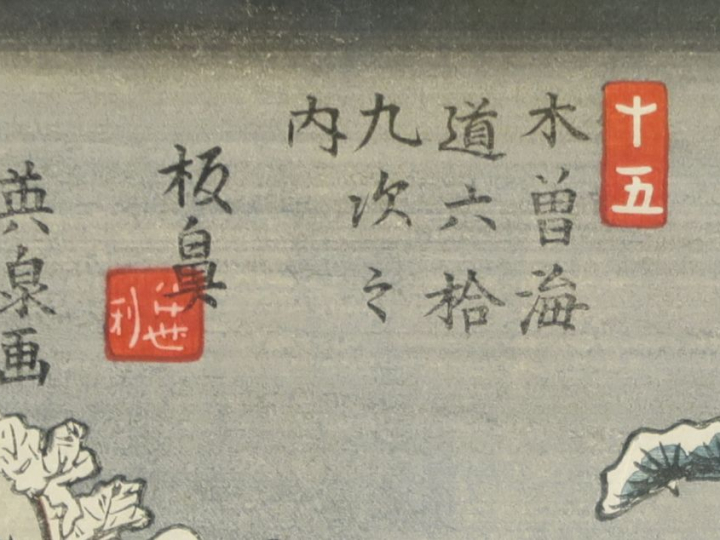 十五
木曽海
道六拾
九次之
内
板鼻
英泉画